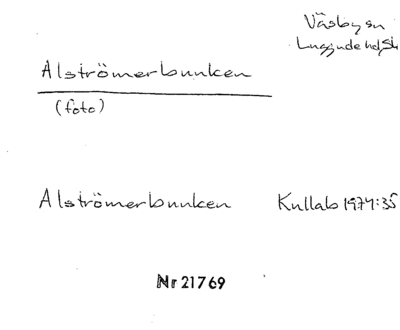 Väsby sn
Luggude hd, Sk
Alströmerbunken
(foto)
Alströmerbunken Kullab 1974:35
Nr 21769